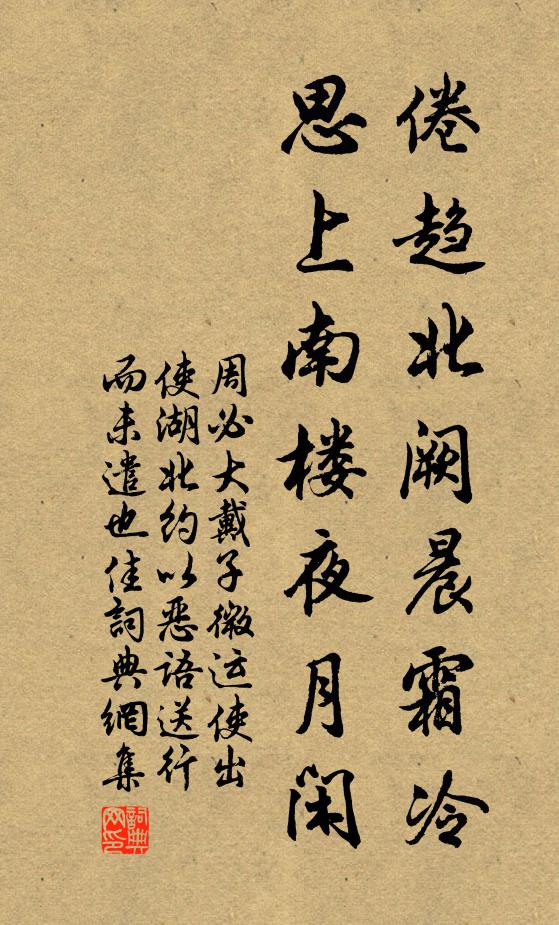 倦趋北阙晨霜冷
思上南楼夜月闲
周必大戴子微运使出
使湖北约以恶语送行
而未遣也佳詞典網集
詞典网印